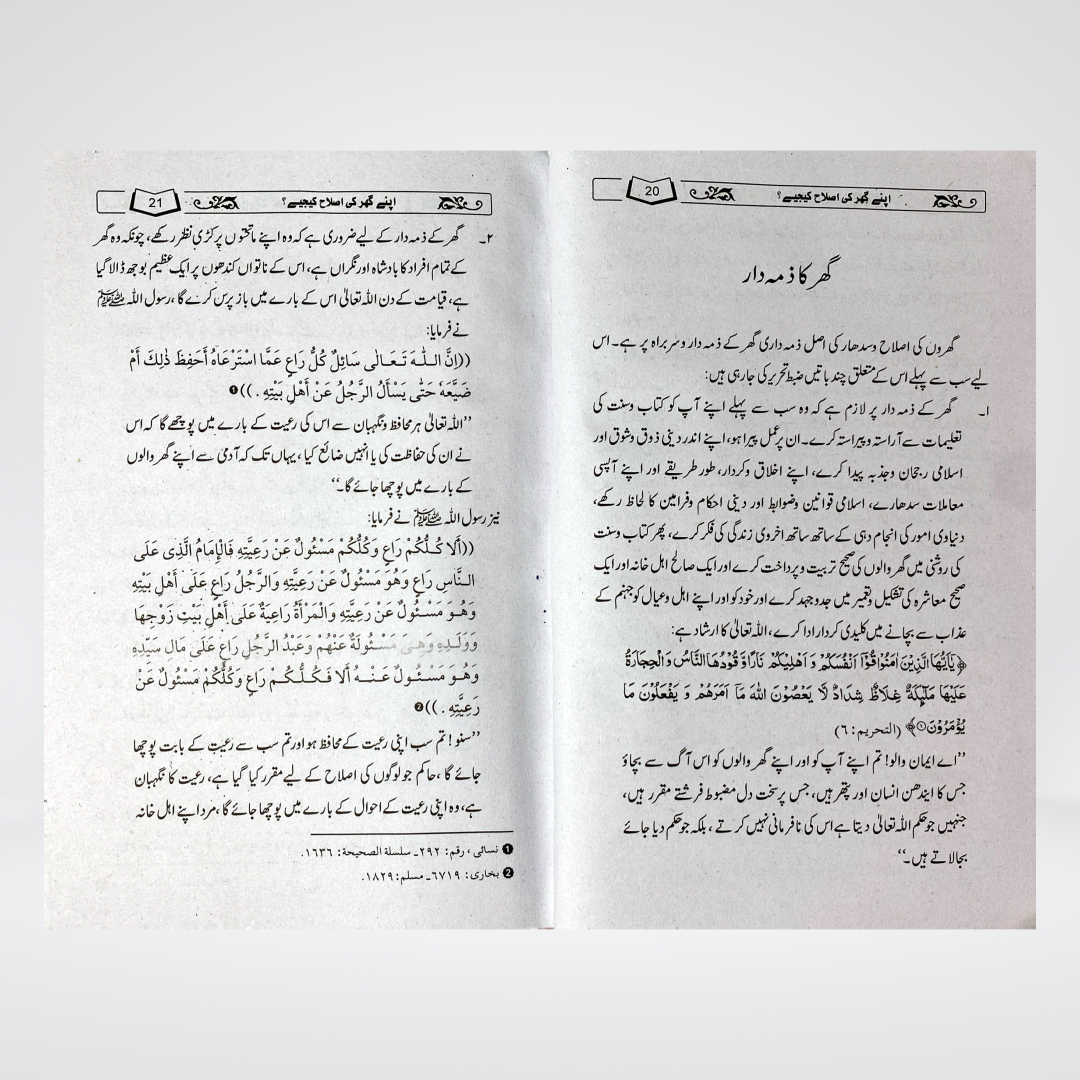 اپنے گھر کی اصلاح کیجیے؟ 20
گھر کا ذمہ دار
گھروں کی اصلاح وسدھار کی اصل ذمہ داری گھر کے ذمہ دار وسربراہ پر ہے۔ اس
لیے سب سے پہلے اس کے متعلق چند باتیں ضبط تحریر کی جارہی ہیں:
۱۔ گھر کے ذمہ دار پر لازم ہے کہ وہ سب سے پہلے اپنے آپ کو کتاب وسنت کی
تعلیمات سے آراستہ وپیراستہ کرے۔ ان پر عمل پیرا ہو، اپنے اندر دینی ذوق وشوق اور
اسلامی رجحان وجذبہ پیدا کرے، اپنے اخلاق وکردار، طور طریقے اور اپنے آپسی
معاملات سدھارے، اسلامی قوانین وضوابط اور دینی احکام وفرامین کا لحاظ رکھے،
دنیاوی امور کی انجام دہی کے ساتھ ساتھ اخروی زندگی کی فکر کرے، پھر کتاب وسنت
کی روشنی میں گھر والوں کی صحیح تربیت و پرداخت کرے اور ایک صالح اہل خانہ اور ایک
صحیح معاشرہ کی تشکیل وتعمیر میں جدوجہد کرے اور خود کو اور اپنے اہل وعیال کو جہنم کے
عذاب سے بچانے میں کلیدی کردار ادا کرے، اللہ تعالیٰ کا ارشاد ہے:
﴿ يٰۤاَيُّهَا الَّذِيْنَ اٰمَنُوْا قُوْۤا اَنْفُسَكُمْ وَ اَهْلِيْكُمْ نَارًا وَّ قُوْدُهَا النَّاسُ وَ الْحِجَارَةُ
عَلَيْهَا مَلٰٓىِٕكَةٌ غِلَاظٌ شِدَادٌ لَّا يَعْصُوْنَ اللّٰهَ مَاۤ اَمَرَهُمْ وَ يَفْعَلُوْنَ مَا
يُؤْمَرُوْنَ۶ ﴾ (التحریم: ۶)
’’اے ایمان والو! تم اپنے آپ کو اور اپنے گھر والوں کو اس آگ سے بچاؤ
جس کا ایندھن انسان اور پتھر ہیں، جس پر سخت دل مضبوط فرشتے مقرر ہیں،
جنہیں جو حکم اللہ تعالیٰ دیتا ہے اس کی نافرمانی نہیں کرتے، بلکہ جو حکم دیا جائے
بجالاتے ہیں۔‘‘
اپنے گھر کی اصلاح کیجیے؟ 21
۲۔ گھر کے ذمہ دار کے لیے ضروری ہے کہ وہ اپنے ماتحتوں پر کڑی نظر رکھے، چونکہ وہ گھر
کے تمام افراد کا بادشاہ اور نگراں ہے، اس کے ناتواں کندھوں پر ایک عظیم بوجھ ڈالا گیا
ہے، قیامت کے دن اللہ تعالیٰ اس کے بارے میں باز پرس کرے گا، رسول اللہ ﷺ
نے فرمایا:
((إِنَّ اللّٰهَ تَعَالٰى سَائِلٌ كُلَّ رَاعٍ عَمَّا اسْتَرْعَاهُ أَحَفِظَ ذٰلِكَ أَمْ
ضَيَّعَهُ حَتّٰى يَسْأَلُ الرَّجُلُ عَنْ أَهْلِ بَيْتِهِ . ))❶
’’اللہ تعالیٰ ہر محافظ ونگہبان سے اس کی رعیت کے بارے میں پوچھے گا کہ اس
نے ان کی حفاظت کی یا انہیں ضائع کیا، یہاں تک کہ آدمی سے اپنے گھر والوں
کے بارے میں پوچھا جائے گا۔‘‘
نیز رسول اللہ ﷺ نے فرمایا:
((أَلَا كُلُّكُمْ رَاعٍ وَكُلُّكُمْ مَسْئُولٌ عَنْ رَعِيَّتِهِ فَالْإِمَامُ الَّذِي عَلَى
النَّاسِ رَاعٍ وَهُوَ مَسْئُولٌ عَنْ رَعِيَّتِهِ وَالرَّجُلُ رَاعٍ عَلٰى أَهْلِ بَيْتِهِ
وَهُوَ مَسْئُولٌ عَنْ رَعِيَّتِهِ وَالْمَرْأَةُ رَاعِيَةٌ عَلىٰ أَهْلِ بَيْتِ زَوْجِهَا
وَوَلَدِهِ وَهِيَ مَسْئُولَةٌ عَنْهُمْ وَعَبْدُ الرَّجُلِ رَاعٍ عَلىٰ مَالِ سَيِّدِهِ
وَهُوَ مَسْئُولٌ عَنْهُ أَلَا فَكُلُّكُمْ رَاعٍ وَكُلُّكُمْ مَسْئُولٌ عَنْ
رَعِيَّتِهِ . ))❷
’’سنو! تم سب اپنی رعیت کے محافظ ہو اور تم سب سے رعیت کے بابت پوچھا
جائے گا، حاکم جو لوگوں کی اصلاح کے لیے مقرر کیا گیا ہے، رعیت کا نگہبان
ہے، وہ اپنی رعیت کے احوال کے بارے میں پوچھا جائے گا، مرد اپنے اہل خانہ
❶ نسائی، رقم: ۲۹۲۔ سلسلة الصحیحة: ۱۶۳۶.
❷ بخاری: ۶۷۱۹۔ مسلم: ۱۸۲۹.